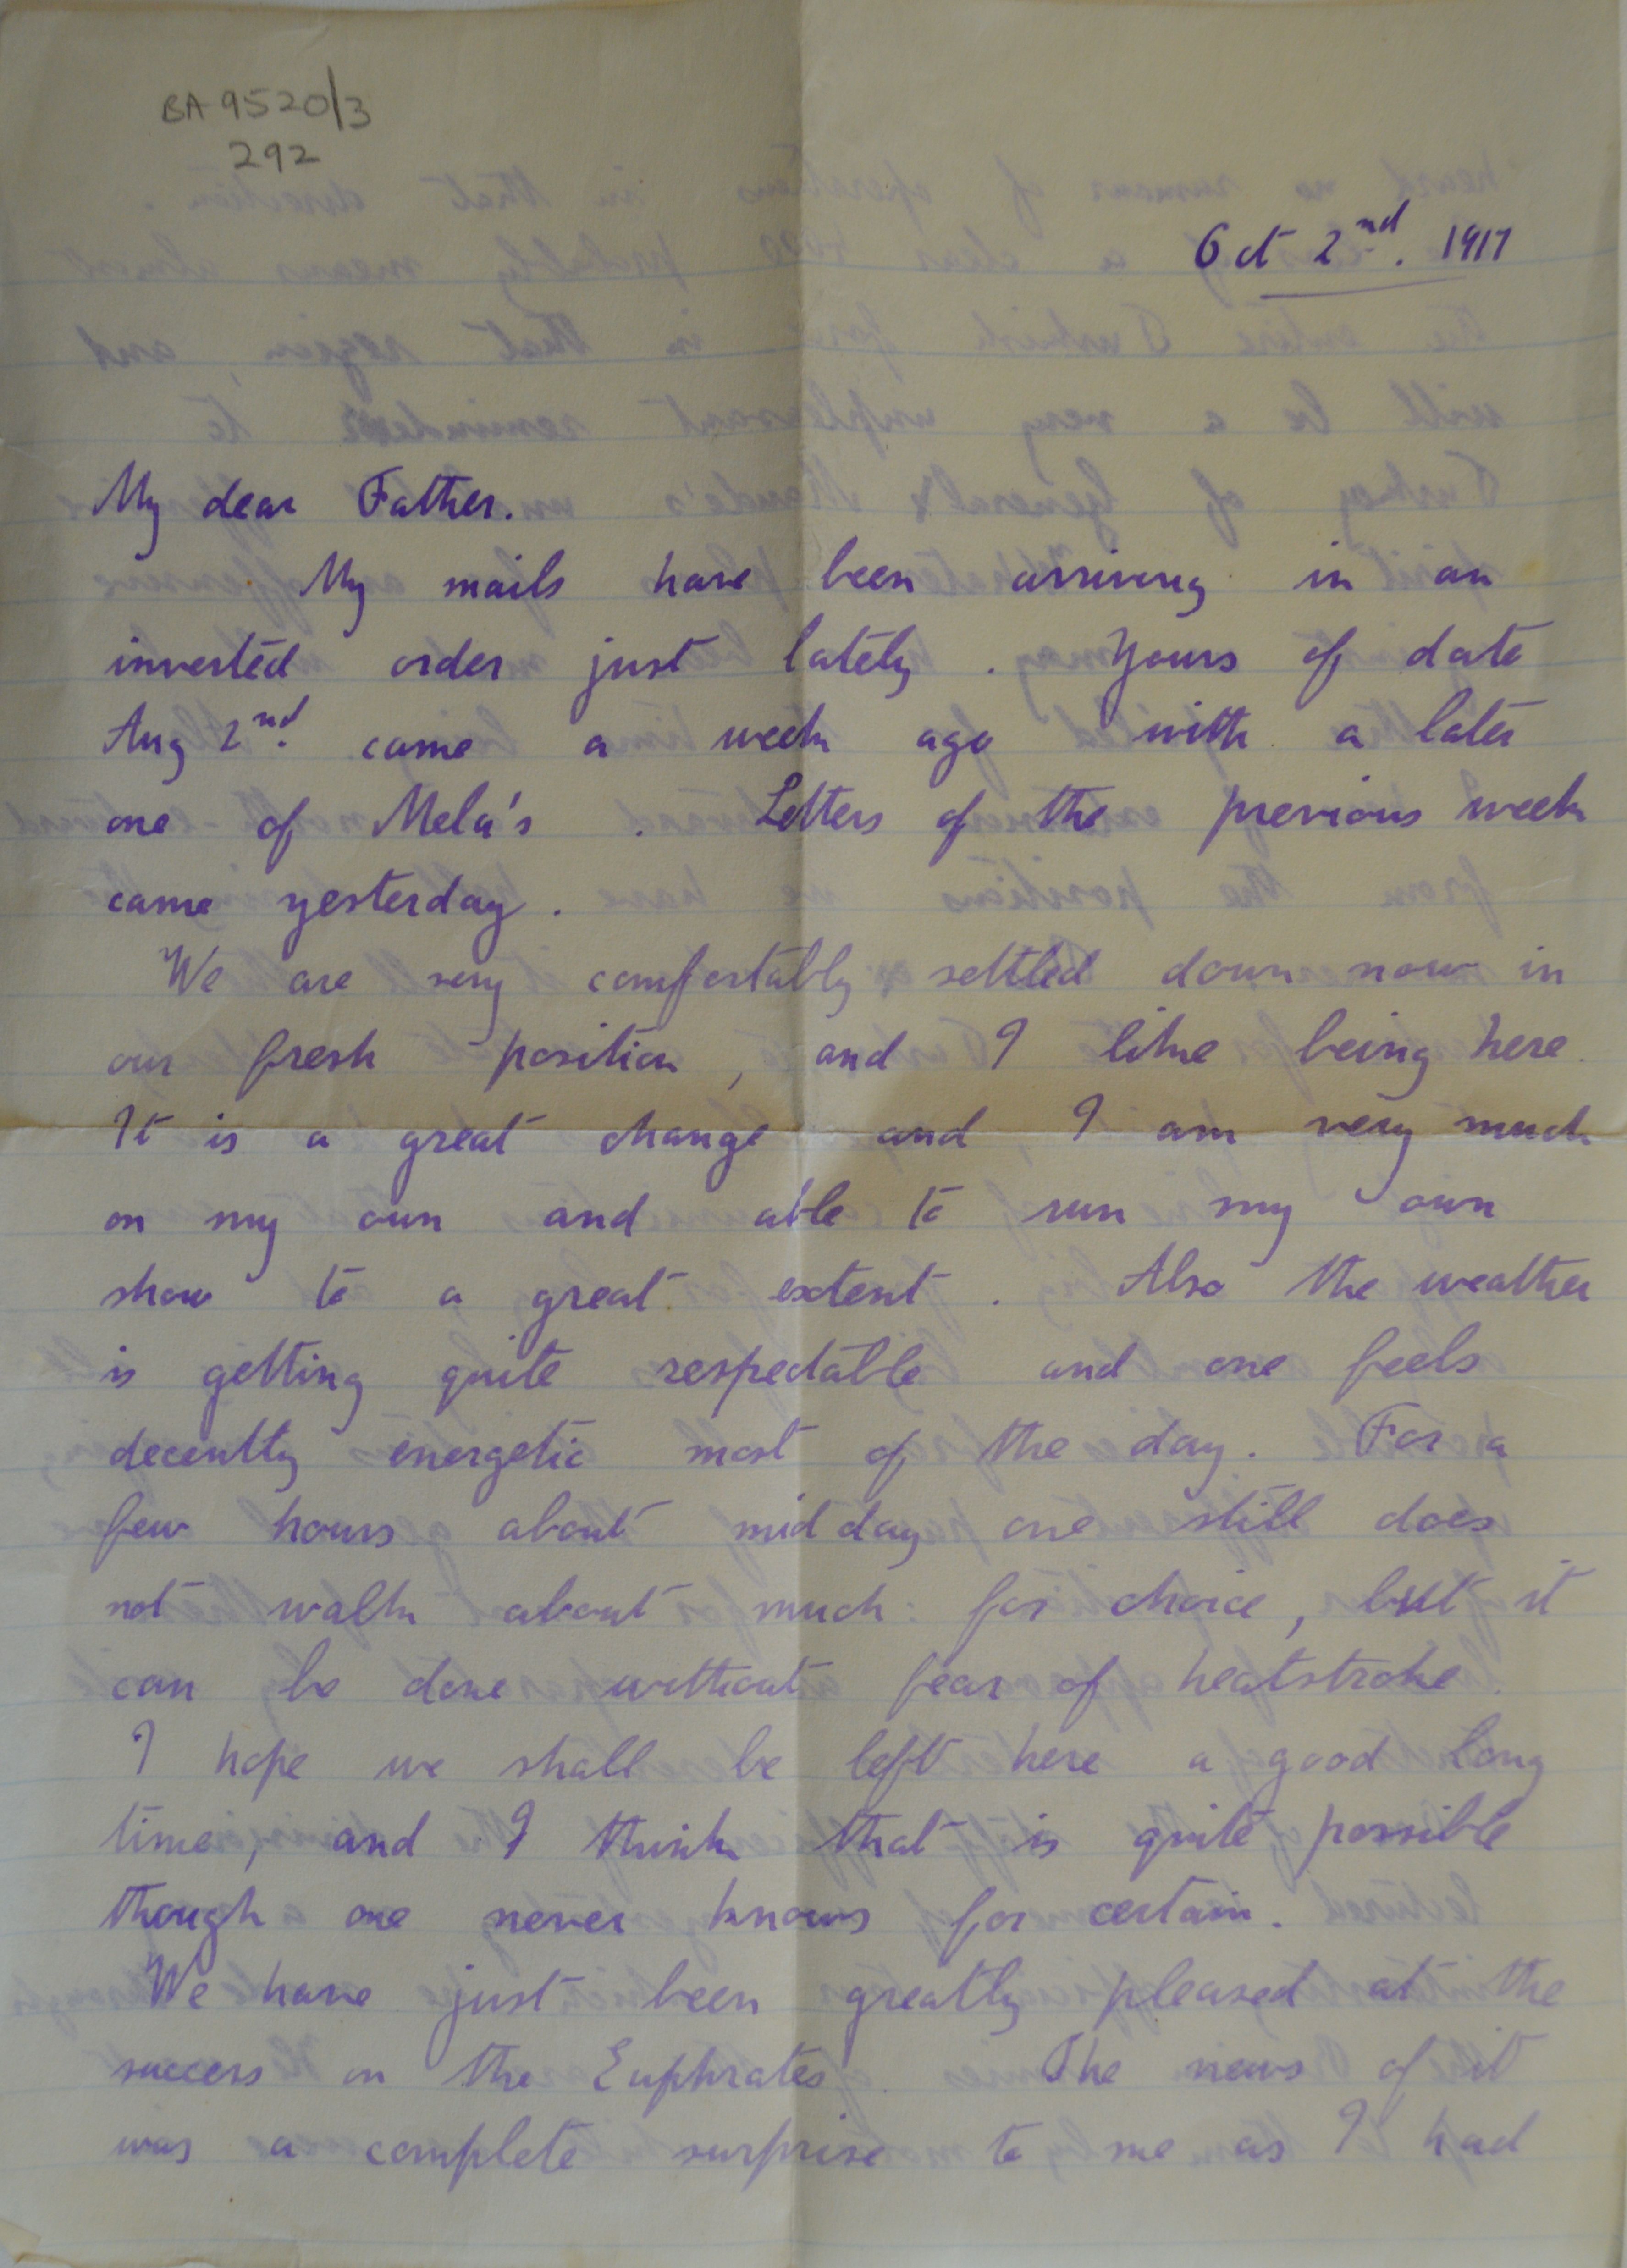 BA 9520/3
292
Oct 2nd. 1917
My dear Father.
My mails have been arriving in an
inverted order just lately. Yours of date
Aug 2nd. came a week ago with a later
one of Mela's. Letters of the previous week
came yesterday.
We are very comfortably settled down now in
our fresh position, and I like being here.
It is a great change and I am very much
on my own and able to run my own
show to a great extent. Also the weather
is getting quite respectable and one feels
decently energetic most of the day. For a
few hours about mid day one still does
not walk about much for choice, but it
can be done without fear of heatstroke.
I hope we shall be left here a good long
time, and I think that is quite possible
though one never knows for certain.
We have just been greatly pleased at the
success on the Euphrates. The news of it
was a complete surprise to me as I had